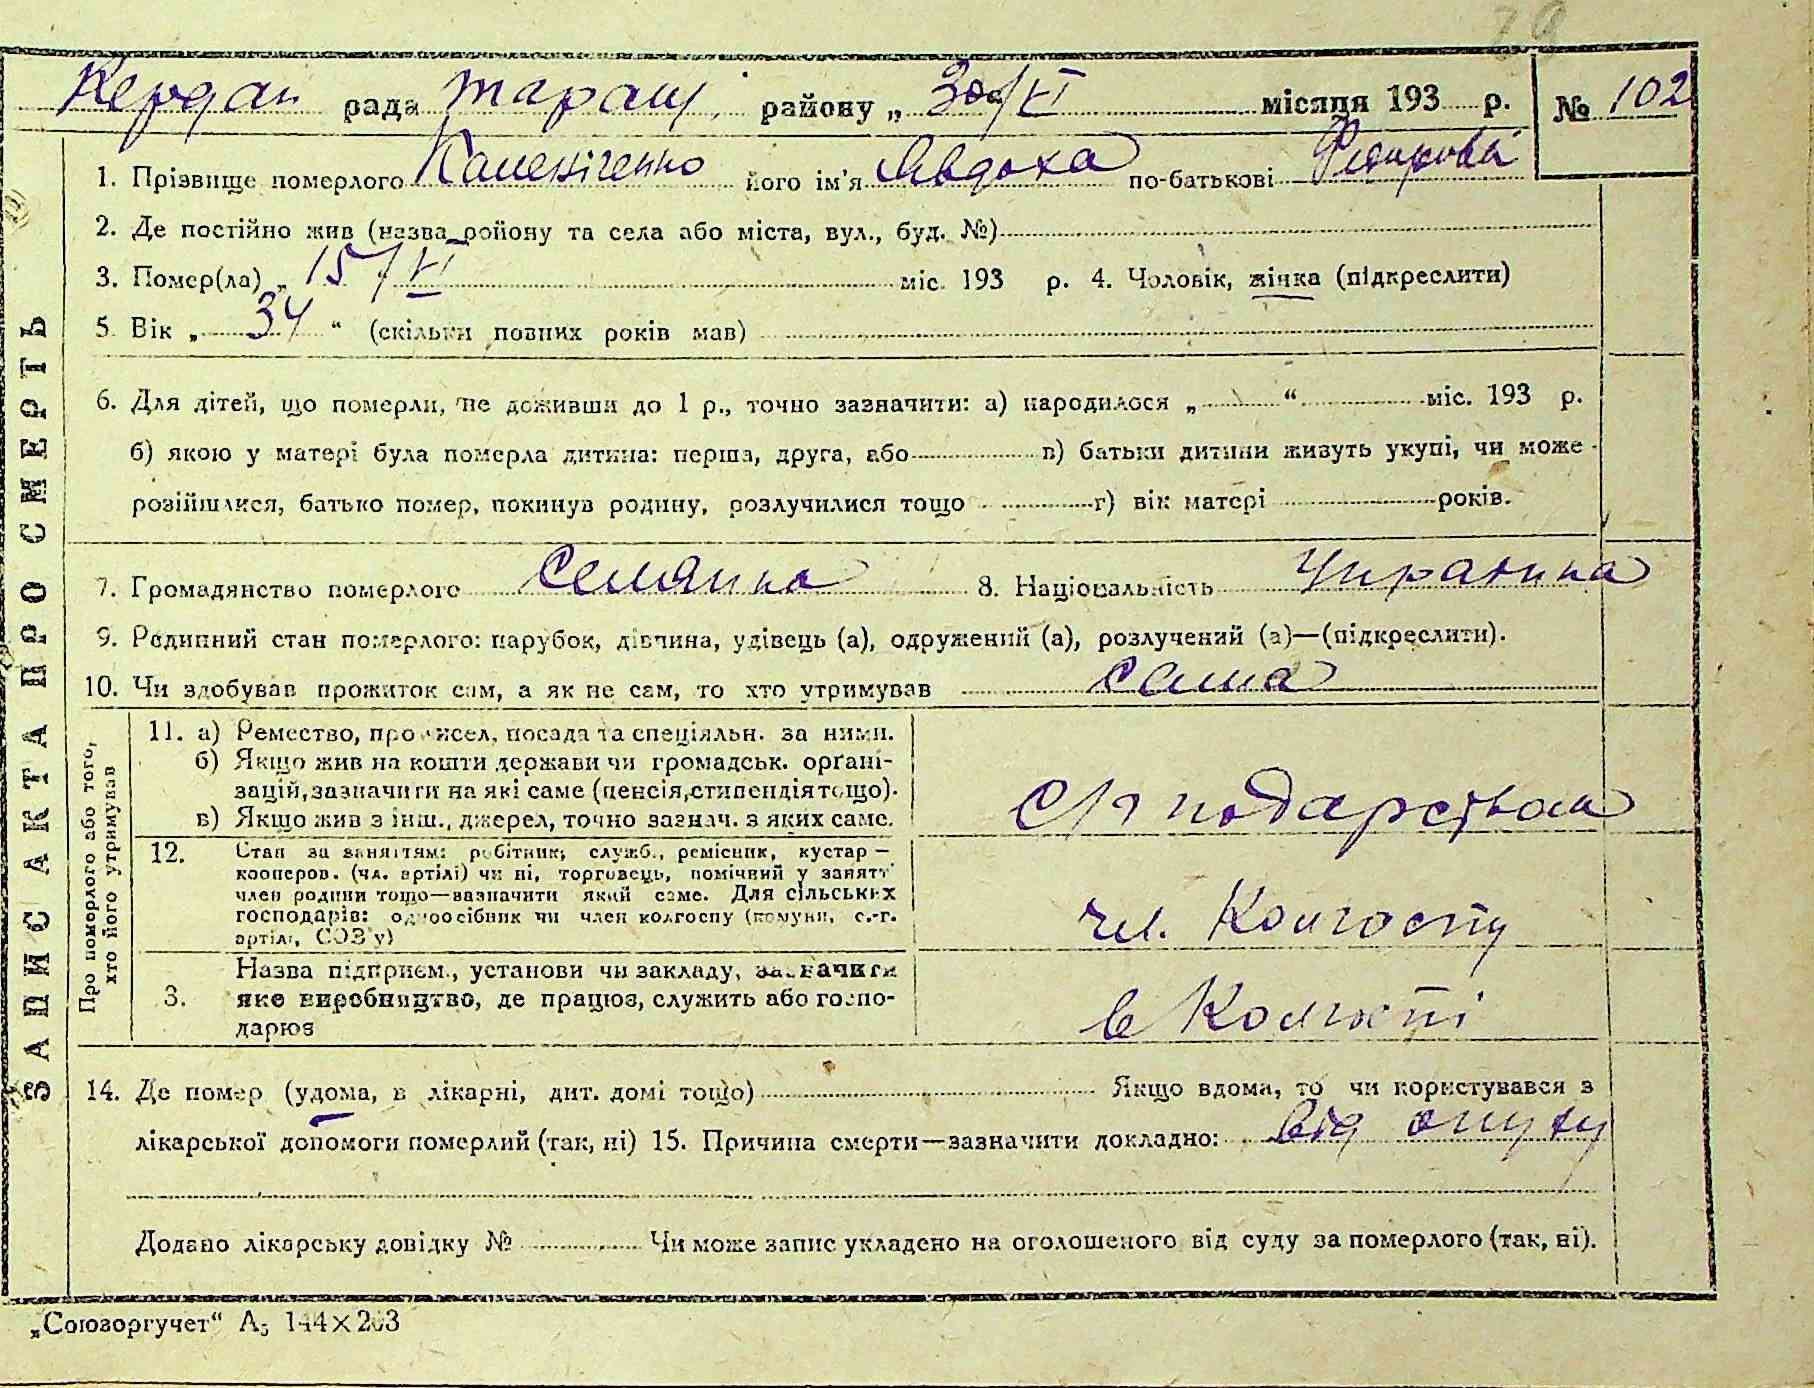 29
Кердан рада Таращ. району „ 30/VI місяця 193 р. № 102
1. Прізвище померлого його ім'я Явдоха по-батькові
2. Де постійно жив (назва району та села або міста, вул., буд. №)
3. Помер(ла) „ 15/VI міс. 193 р. 4. Чоловік, жінка (підкреслити)
5. Вік „ 34 “ (скільки повних років мав)
6. Для дітей, що померли, не доживши до 1 р., точно зазначити: а) народилося „ “ міс. 193 р.
б) якою у матері була померла дитина: перша, друга, або в) батьки дитини живуть укупі, чи може
розійшлися, батько помер, покинув родину, розлучилися тощо г) вік матері років.
7. Громадянство померлого Селянка 8. Національність Украинка
9. Родинний стан померлого: парубок, дівчина, удівець (а), одружений (а), розлучений (а)—(підкреслити).
10. Чи здобував прожиток сам, а як не сам, то хто утримував сама
ЗАПИС АКТА ПРО СМЕРТЬ
Про померлого або того,
хто його утримував
11. а) Ремество, промисел, посада та спеціяльн. за ними.
б) Якщо жив на кошти держави чи громадськ. орґані-
зацій, зазначити на які саме (пенсія, стипендія тощо).
в) Якщо жив з інш., джерел, точно зазнач. з яких саме.
12. Стан за заняттям: робітник, служб., ремісник, кустар —
кооперов. (чл. артілі) чи ні, торговець, помічний у занятт
член родини тощо—зазначити який саме. Для сільських
господарів: одноосібник чи член колгоспу (комуни, с.-г.
артілі, СОЗ'у)
чл. Колгоспу
Назва підприєм., установи чи закладу, зазначити
3. яке виробництво, де працює, служить або госпо-
дарює
в Колгоспі
14. Де помер (удома, в лікарні, дит. домі тощо) Якщо вдома, то чи користувався з
лікарської допомоги померлий (так, ні) 15. Причина смерти—зазначити докладно: від опуху
Додано лікарську довідку № Чи може запис укладено на оголошеного від суду за померлого (так, ні).
„Союзоргучет“ А5 144×203